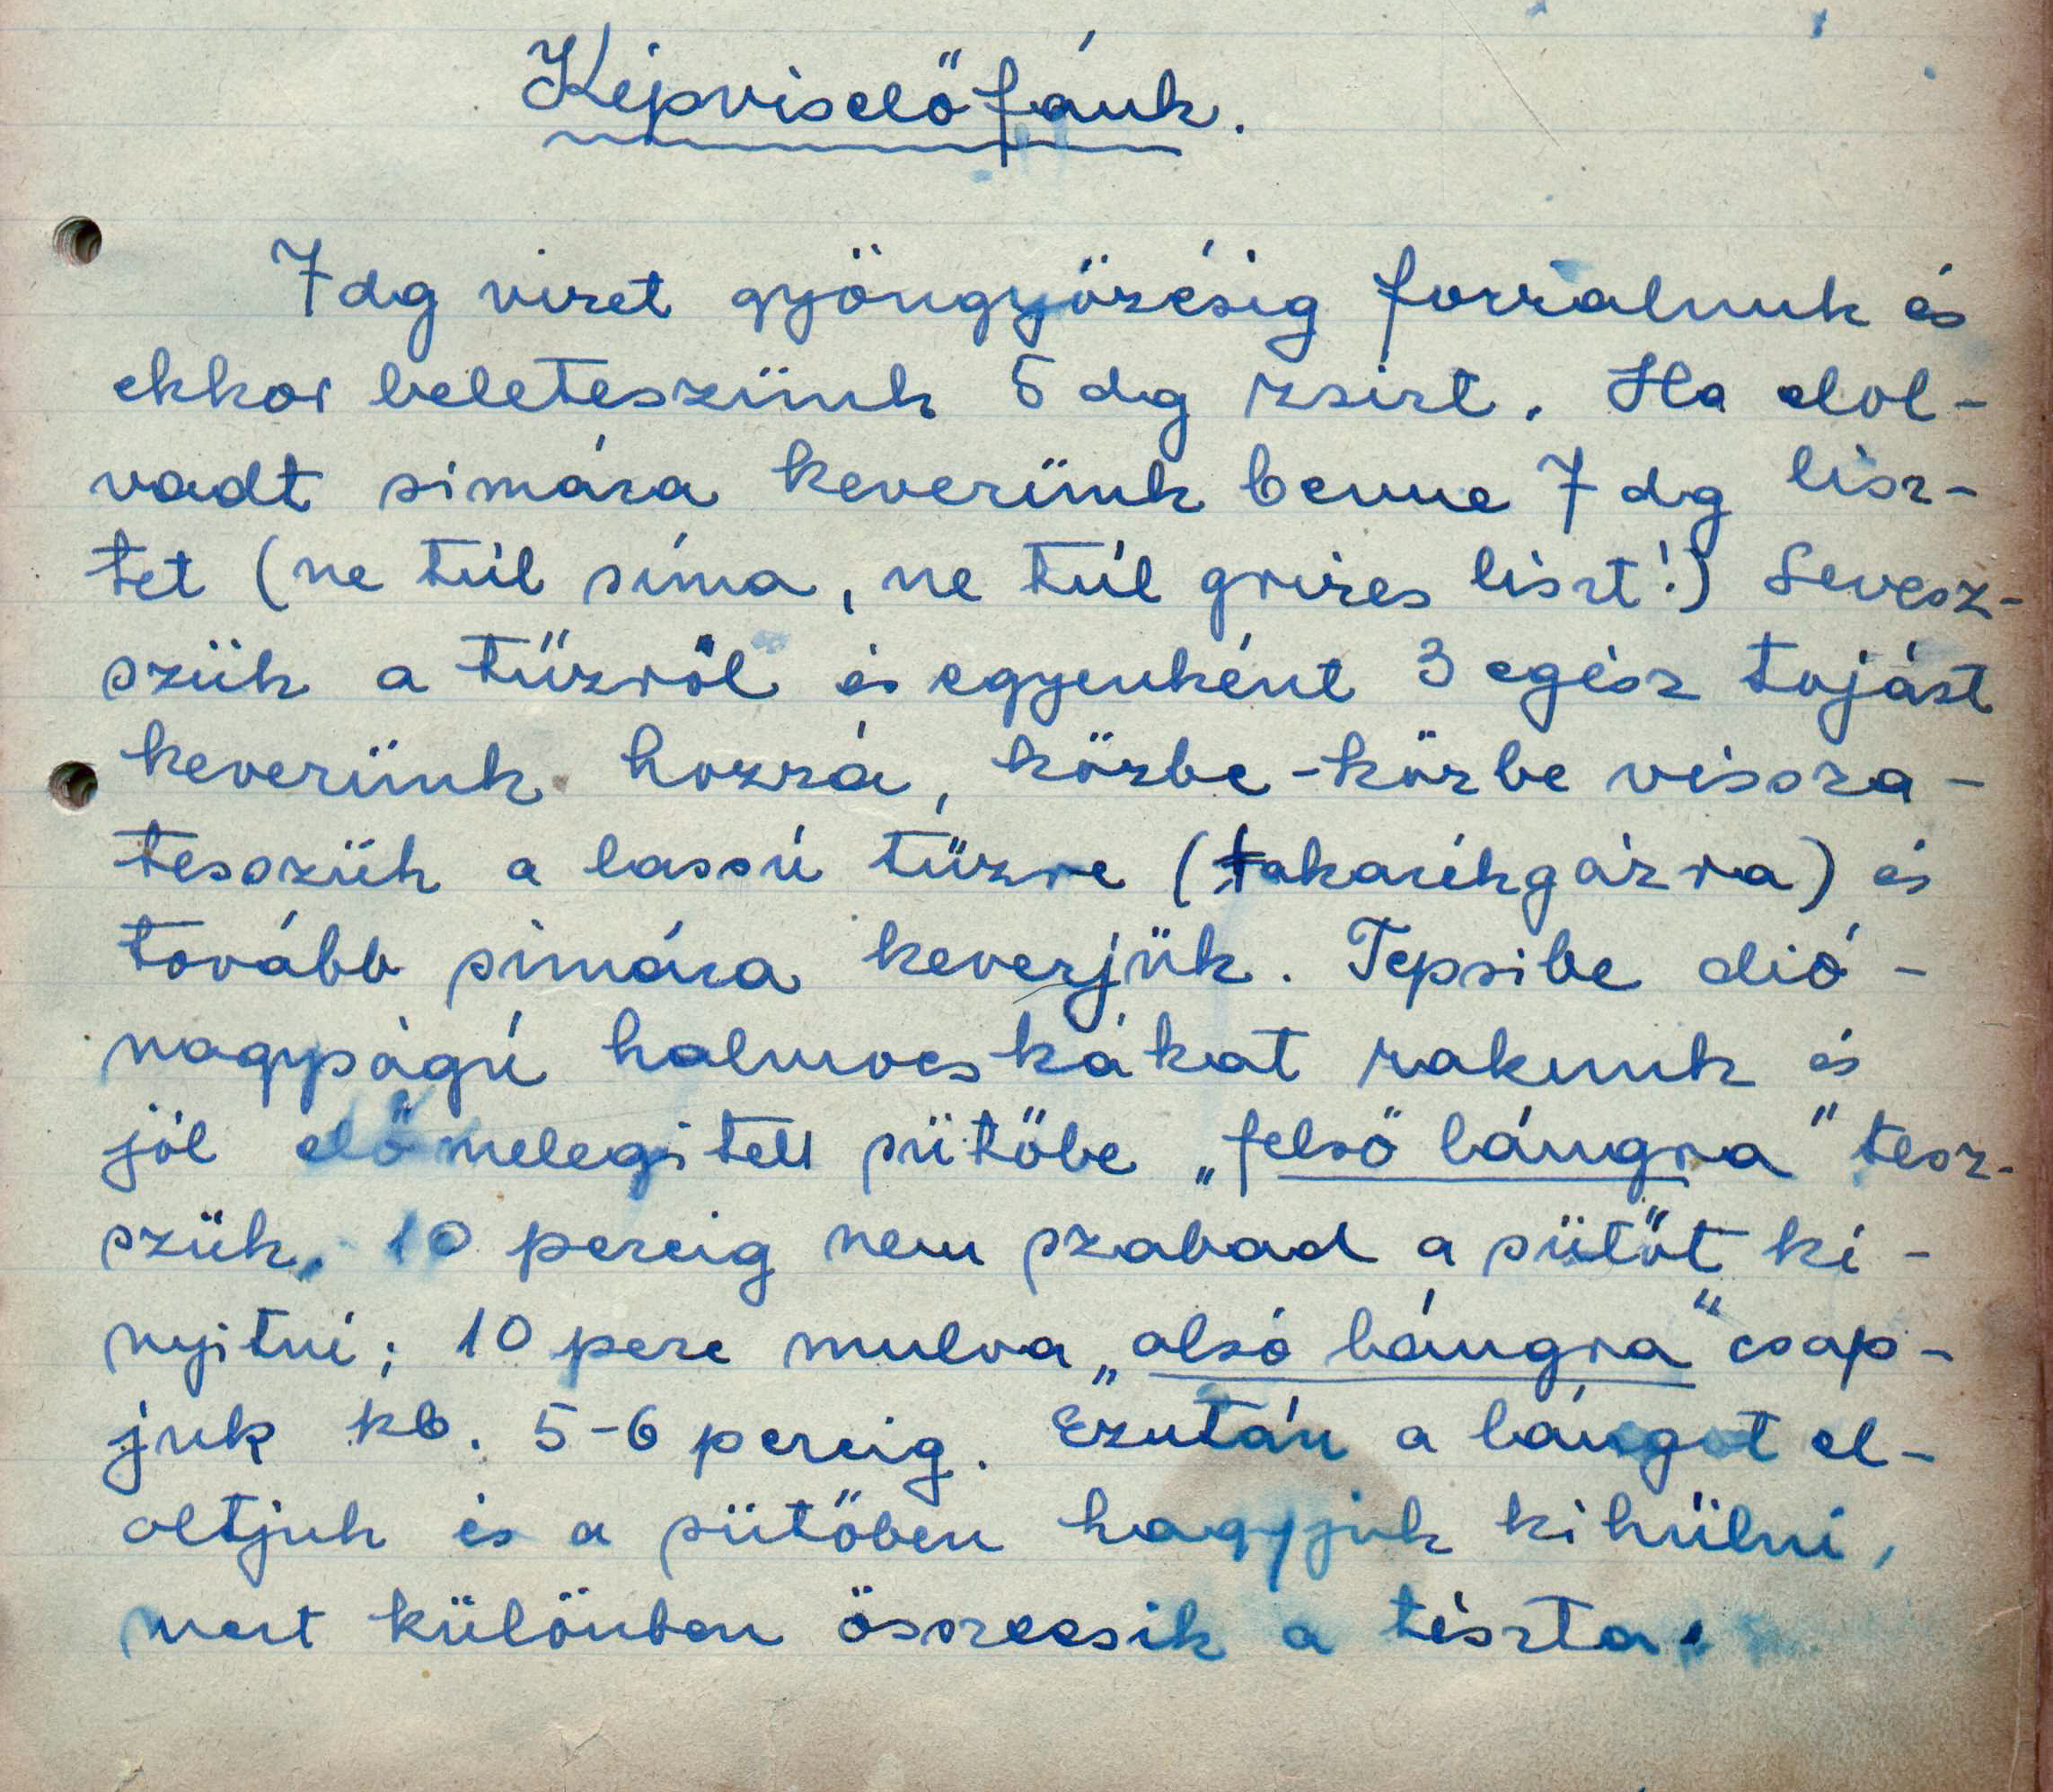 Képviselőfánk.
7 dg vizet gyöngyözésig forralunk és
ekkor beleteszünk 5 dg zsirt. Ha elol-
vadt simára keverünk benne 7 dg lisz-
tet (ne túl síma, ne túl grízes liszt!) Levesz-
szük a tűzről és egyenként 3 egész tojást
keverünk hozzá, közbe-közbe vissza-
tesszük a lassú tűzre (takarékgázra) és
tovább simára keverjük. Tepsibe dió-
nagyságú halmocskákat rakunk és
jól előmelegitett sütőbe „felső lángra" tesz-
szük. 10 percig nem szabad a sütőt ki-
nyitni; 10 perc mulva „alsó lángra" csap-
juk kb. 5-6 percig. Ezután a lángot el-
oltjuk és a sütőben hagyjuk kihülni,
mert különben összeesik a tészta.